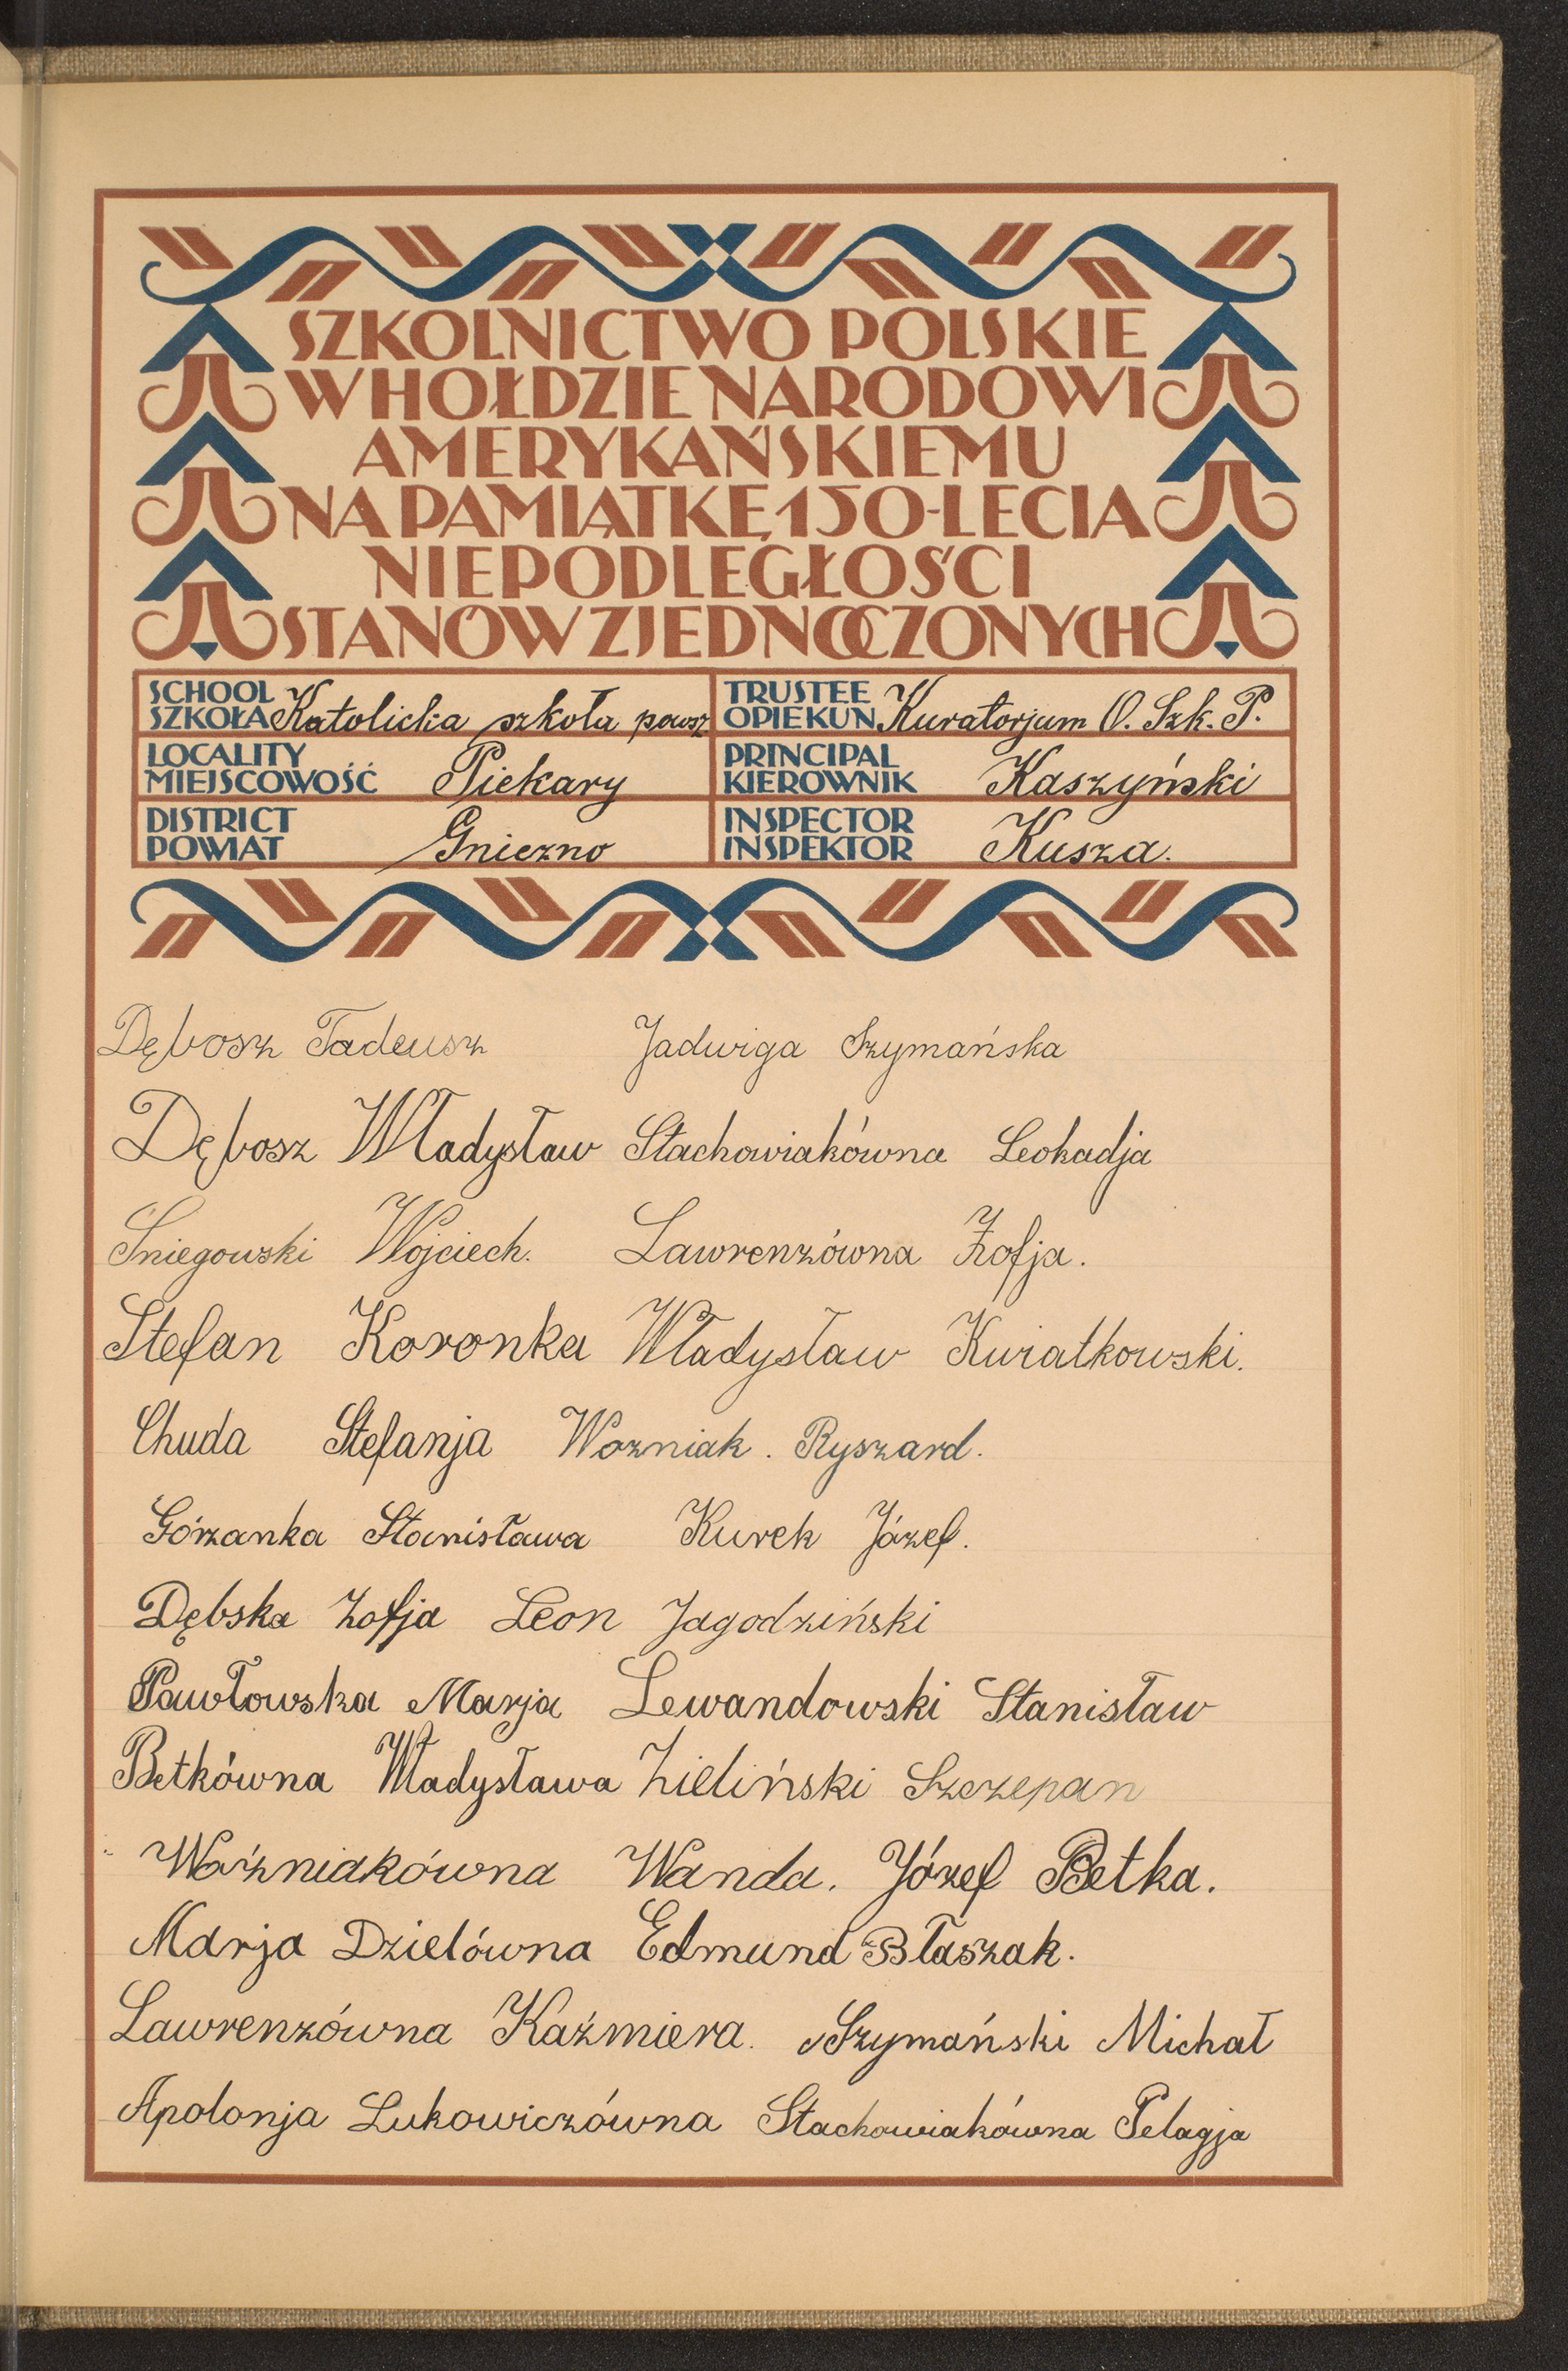 SZKOLNICTWO POLSKIE
W HOŁDZIE NARODOWI
AMERYKAŃSKIEMU
NA PAMIĄTKĘ 150-LECIA
NIEPODLEGŁOŚCI
STANÓW ZJEDNOCZONYCH
SCHOOL
SZKOŁA Katolicka szkoła powsz.
TRUSTEE
OPIEKUN Kuratorjum O. Szk. P.
LOCALITY
MIEJSCOWOŚĆ Piekary
PRINCIPAL
KIEROWNIK Kaszyński
DISTRICT
POWIAT Gniezno
INSPECTOR
INSPEKTOR Kusza.
Dębosz Tadeusz Jadwiga Szymańska
Dębosz Władysław Stachowiakówna Leokadja
Śniegowski Wojciech. Lawrenzówna Zofja.
Stefan Koronka Władysław Kwiatkowski.
Chuda Stefanja Wozniak. Ryszard.
Górzanka Stanisława Kurek Józef.
Dębska Zofja Leon Jagodziński
Pawłowska Marja Lewandowski Stanisław
Betkówna Władysława Zieliński Szczepan
Woźniakówna Wanda. Józef Betka.
Marja Dzielówna Edmund Błaszak.
Lawrenzówna Kaźmiera. Szymański Michał
Apolonja Lukowiczówna Stachowiakówna Pelagja